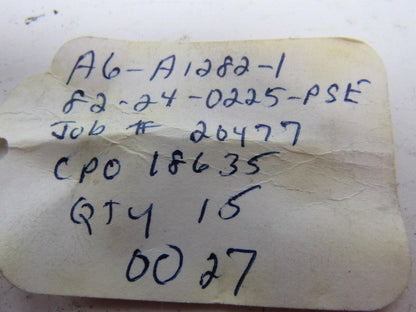 A6-A1282-1
82-24-0225-PSE
Job # 20477
CPO 18635
QTY 15
00 27